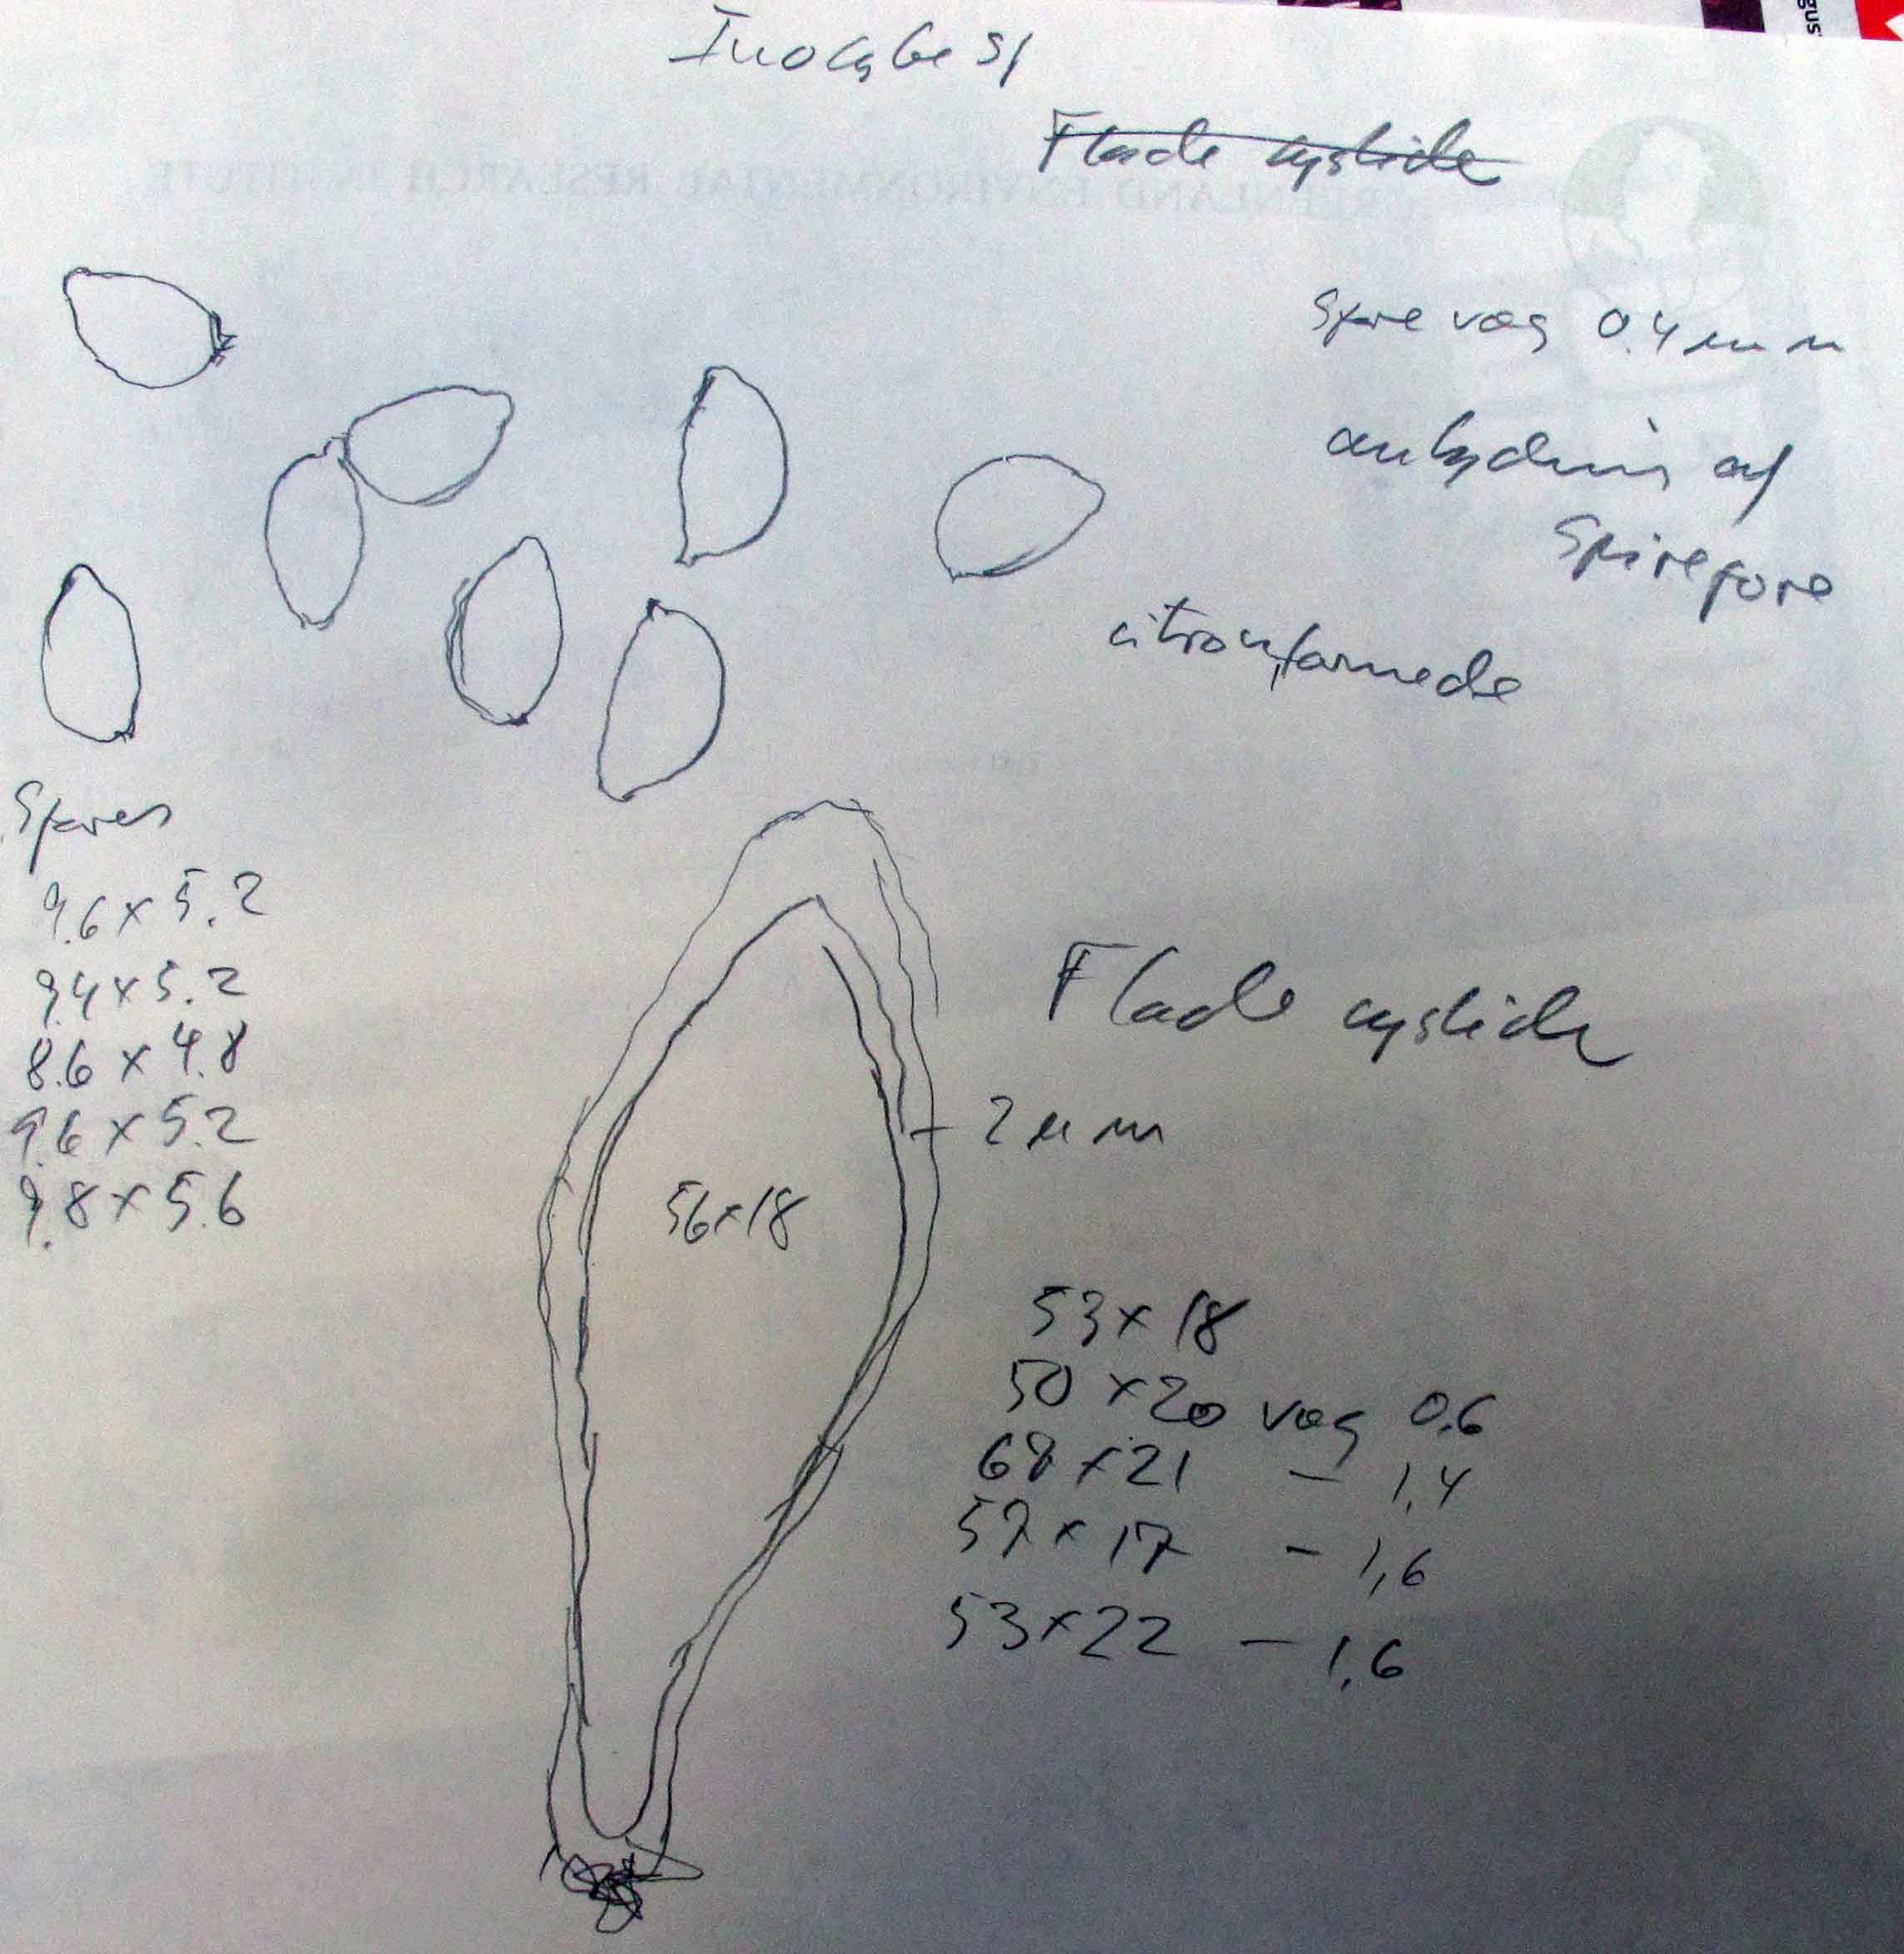 Inocybe sp
Flade cystide
Spore væg 0.4 µm
antydning af
Spirepore
citronformede
Spores
9.6 x 5.2
9.4 x 5.2
8.6 x 4.8
9.6 x 5.2
9.8 x 5.6
Flade cystide
2 µm
56 x 18
53 x 18
50 x 20 væg 0,6
68 x 21 – 1,4
57 x 17 – 1,6
53 x 22 – 1,6
GREENLAND ENVIRONMENTAL RESEARCH INSTITUTE
gus